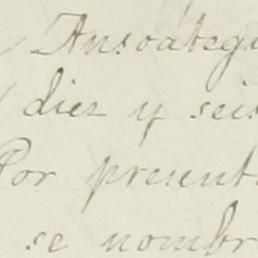 Ansoategu
diez y seis
Por present
se nombr